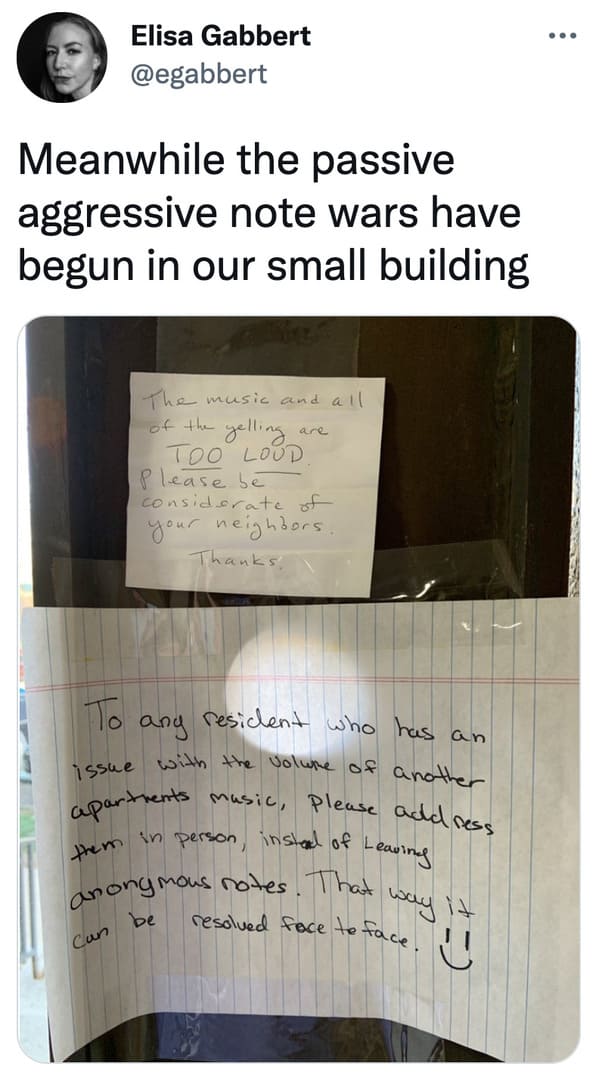 Elisa Gabbert
@egabbert
Meanwhile the passive
aggressive note wars have
begun in our small building
The music and all
of the yelling are
TOO LOUD.
Please be
considerate of
your neighbors.
Thanks.
To any resident who has an
issue with the volume of another
apartments music, please address
them in person, instad of Leaving
anonymous notes. That way it
can be resolved face to face.